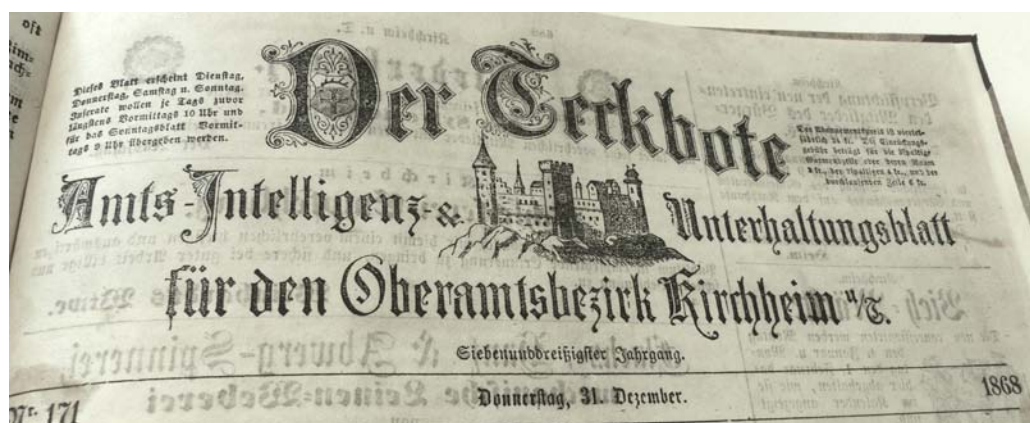 oft
Dieses Blatt erscheint Dienstag,
Donnerstag, Samstag u. Sonntag.
Inserate wollen je Tags zuvor
längstens Vormittags 10 Uhr und
für das Sonntagsblatt Vormit-
tags 9 Uhr übergeben werden.
Der Teckbote
Der Abonnementspreis ist viertel-
jährlich 36 kr. Die Einrückungs-
gebühr beträgt für die
oder deren Raum
2 kr., der 4 kr., und der
durchlaufenden Zeile 6 kr.
Amts-Intelligenz- & Unterhaltungsblatt
für den Oberamtsbezirk Kirchheim u/T.
Siebenunddreißigster Jahrgang.
Nr. 171
Donnerstag, 31. Dezember.
1868